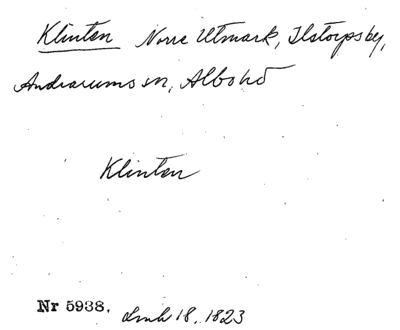 Klinten Norre Utmark, Ilstorps by,
Andrarums sn, Albo hd
Klinten
Nr 5938. Lmh 18, 1823